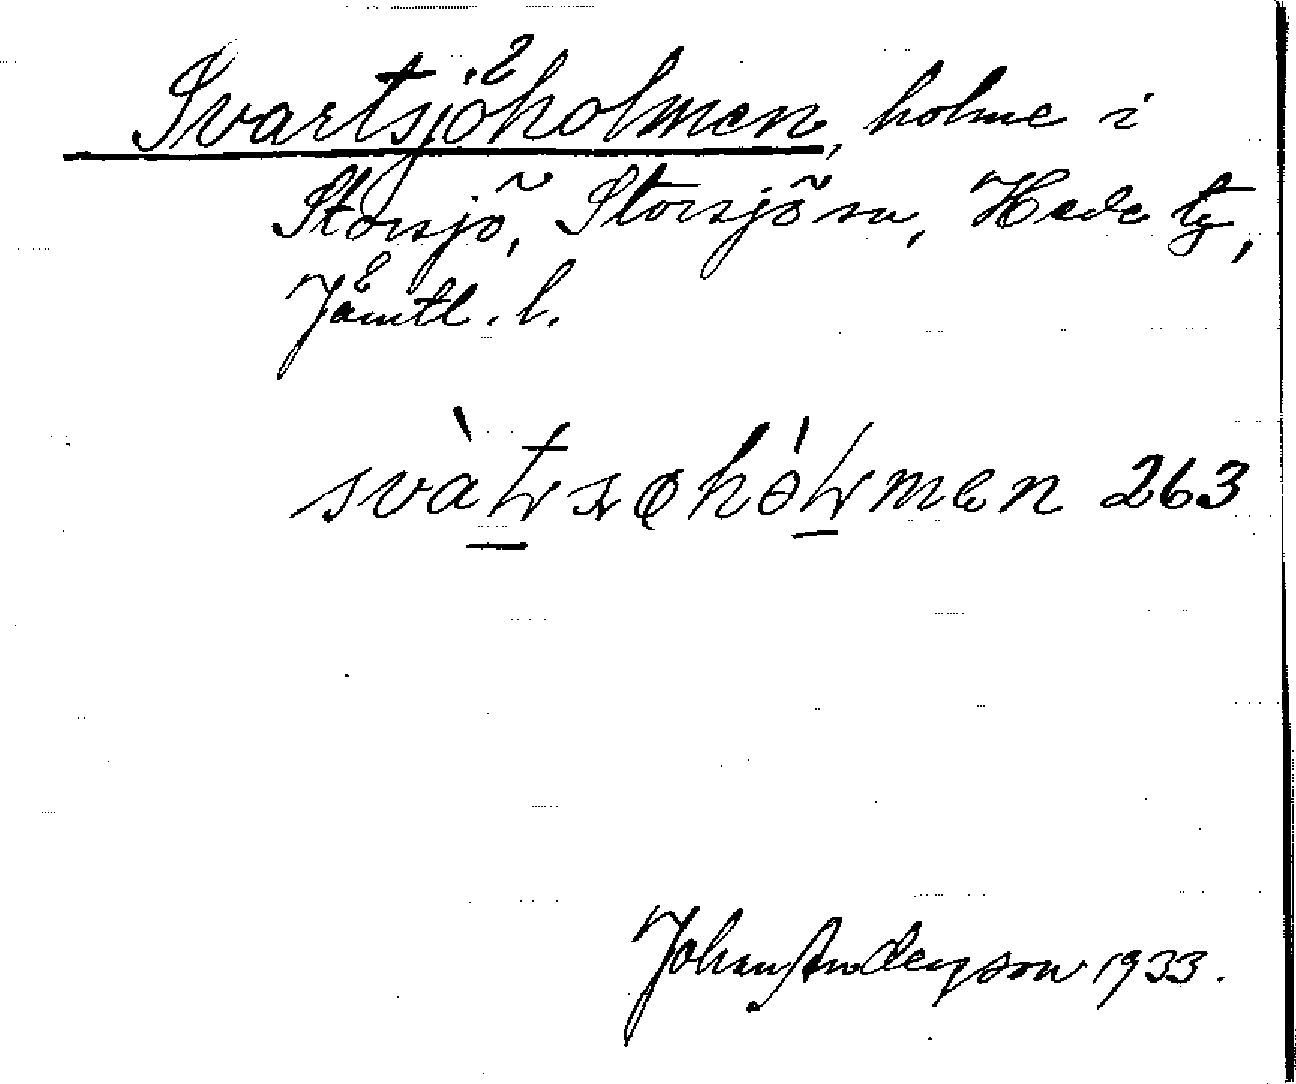 Svartsjöholmen, holme i
Storsjö, Storsjö sn, Hede tg,
Jämtl. l.
263
Johan Anderson 1933.